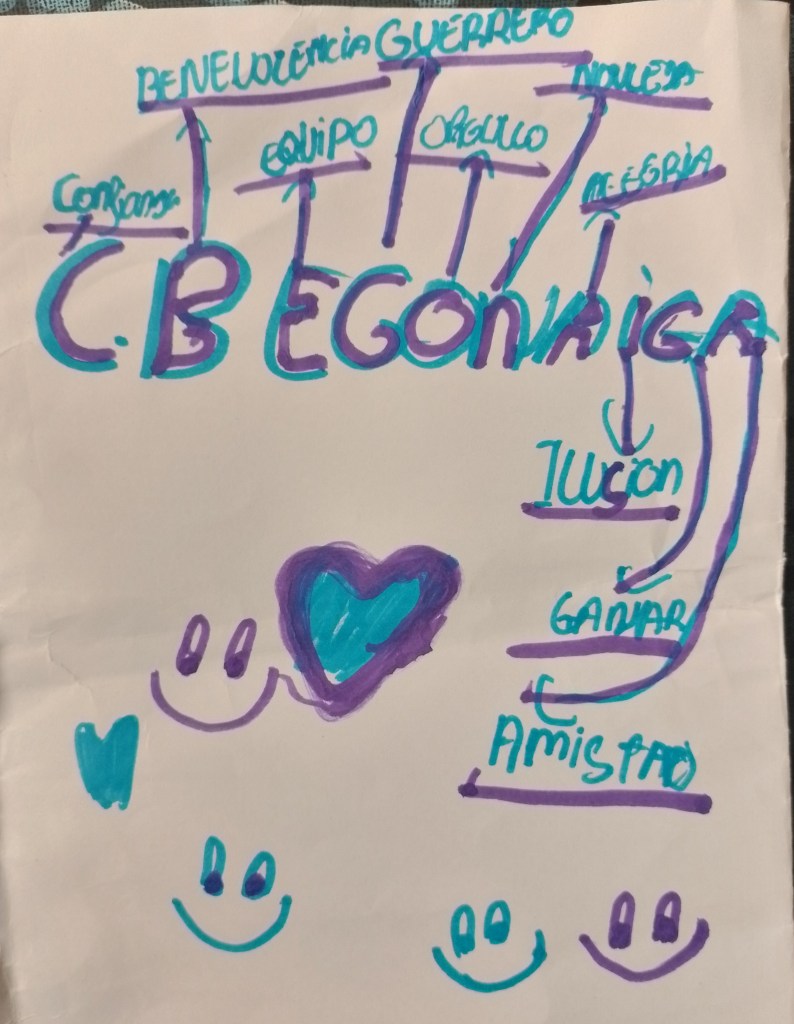 BENEVOLENCIA GUERRERO
NOULESA
EQUIPO ORGULLO
Confianza ALEGRIA
C.B EGONAIGA
ILUSION
GANAR
AMISTAD